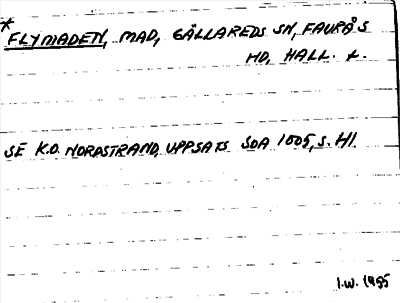 *
FLYMADEN, MAD, GÄLLAREDS SN, FAURÅS
HD, HALL. +.
SE K.O. NORDSTRAND, UPPSATS SOA 1005, S. 41
I.W. 1955